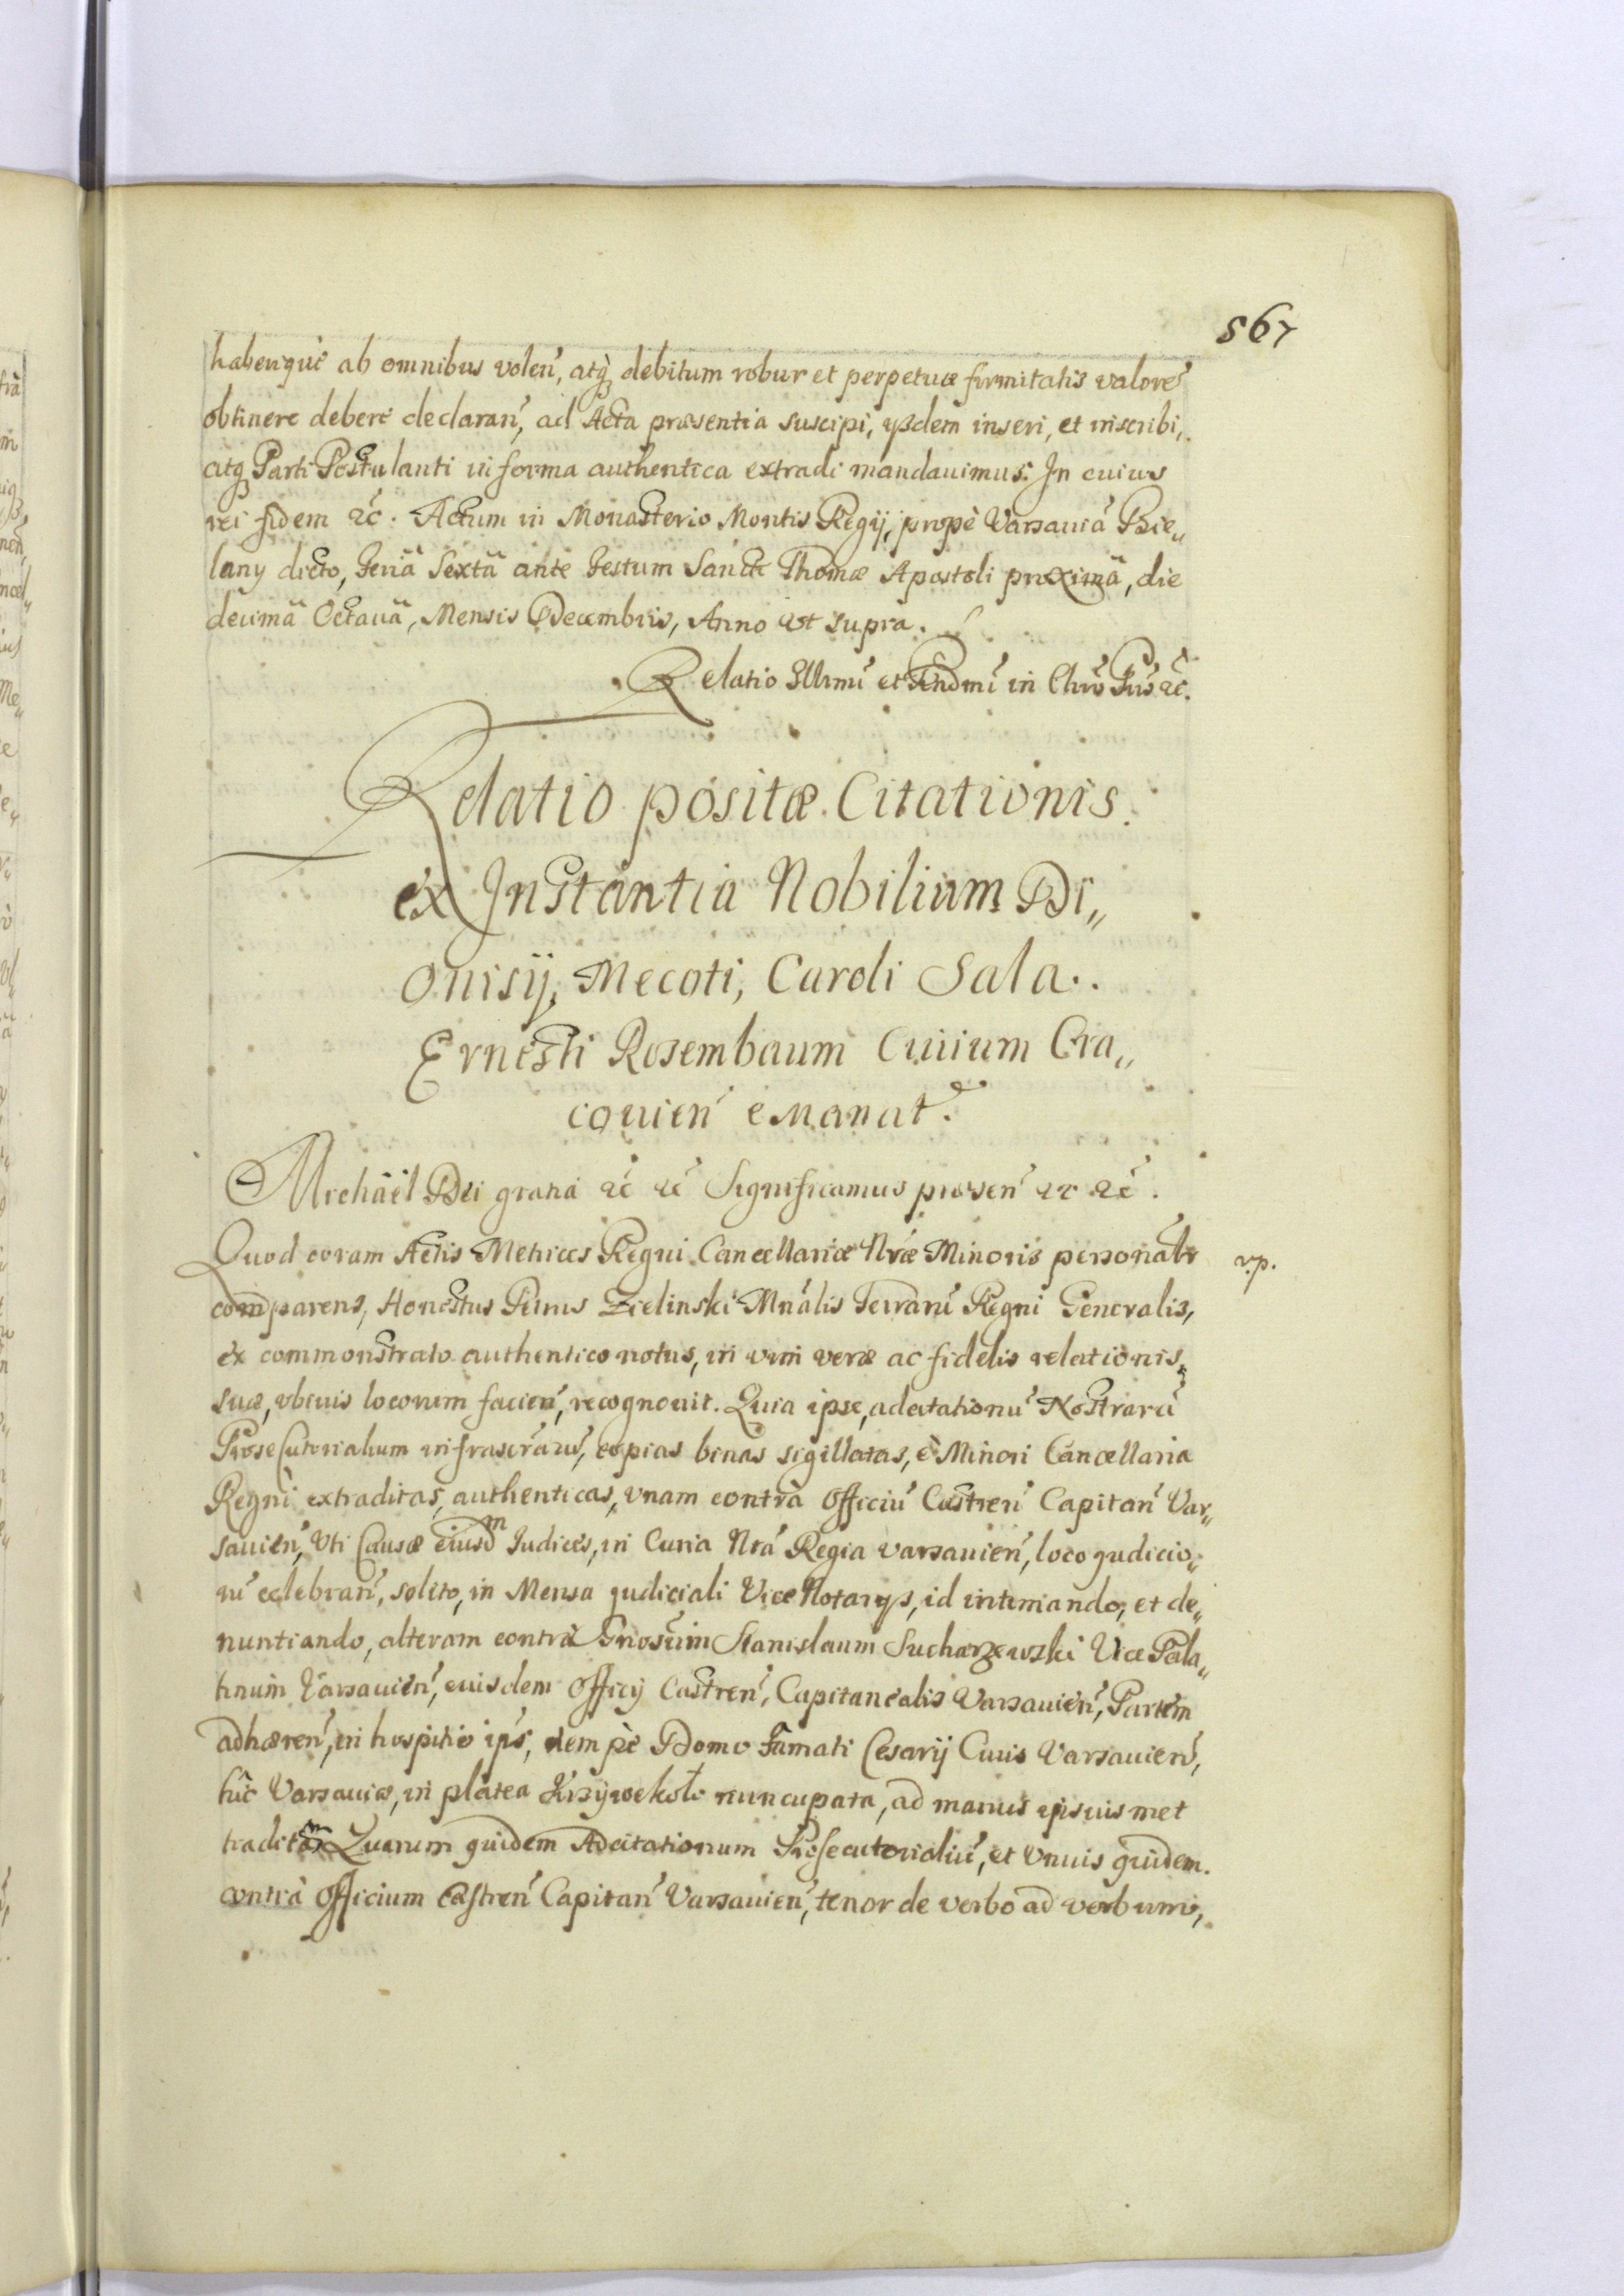 567
habenque ab omnibus volen, atq debitum robur et perpetuæ firmitatis valore
obtinere debere declaran, ad Acta præsentia suscipi, ijsdem inseri, et inscribi,
atq Parti Postulanti in forma authentica extradi mandauimus. In cuius
rei fidem &c. Actum in Monasterio Montis Regij, propè Varsauiã Bie„
lany dicto, Feriã Sextã ante Festum Sancti Thomæ Apostoli proximã, die
decimã Octauã, Mensis Decembris, Anno vt supra.
Relatio Illrmi et Rndmi in Chro Pris &c.
Relatio positæ Citationis
ex Instantia Nobilium Di„
onisij, Mecoti, Caroli Sala.
Ernesti Rosembaum Ciuium Cra„
couien emanat.
Michaël Dei gratia &c &c Significamus præsen &c &c.
Quod coram Actis Metrices Regni Cancellariæ Nræ Minoris personalr
v.p.
comparens, Honestus Petrus Zielinski Mnalis Terraru Regni Generalis,
ex commonstrato authentico notus, in vim veræ ac fidelis relationis
suæ, vbiuis locorum facien, recognouit. Quia ipse, adcitationu Nostraru
Prosecutorialium infrascraru, copias binas sigillatas, è Minori Cancellaria
Regni extraditas, authenticas, vnam contrà Officiu Castren Capitan Var„
sauien, Vti Causæ eiusdm Iudices, in Curia Nra Regia varsauien, loco iudicio„
ru celebran, solito, in Mensa iudiciali Vice Notarys, id intimando, et de„
nuntiando, alteram contrà Gnosum Stanislaum Sucharzewski Vice Pala„
tinum Varsauien, euisdem Officij Castren, Capitanealis Varsauien, Partem
adhæren, in hospitio ips, nempè Domo Famati Cesarij Ciuis Varsauien,
hic Varsauiæ, in platea Krzywekoło nuncupata, ad manus ipsius met
traditam Quarum quidem Adcitationum Prosecutorialiu, et Vnuis quidem
contrà Officium Castren Capitan Varsauien, tenor de verbo ad verbum,